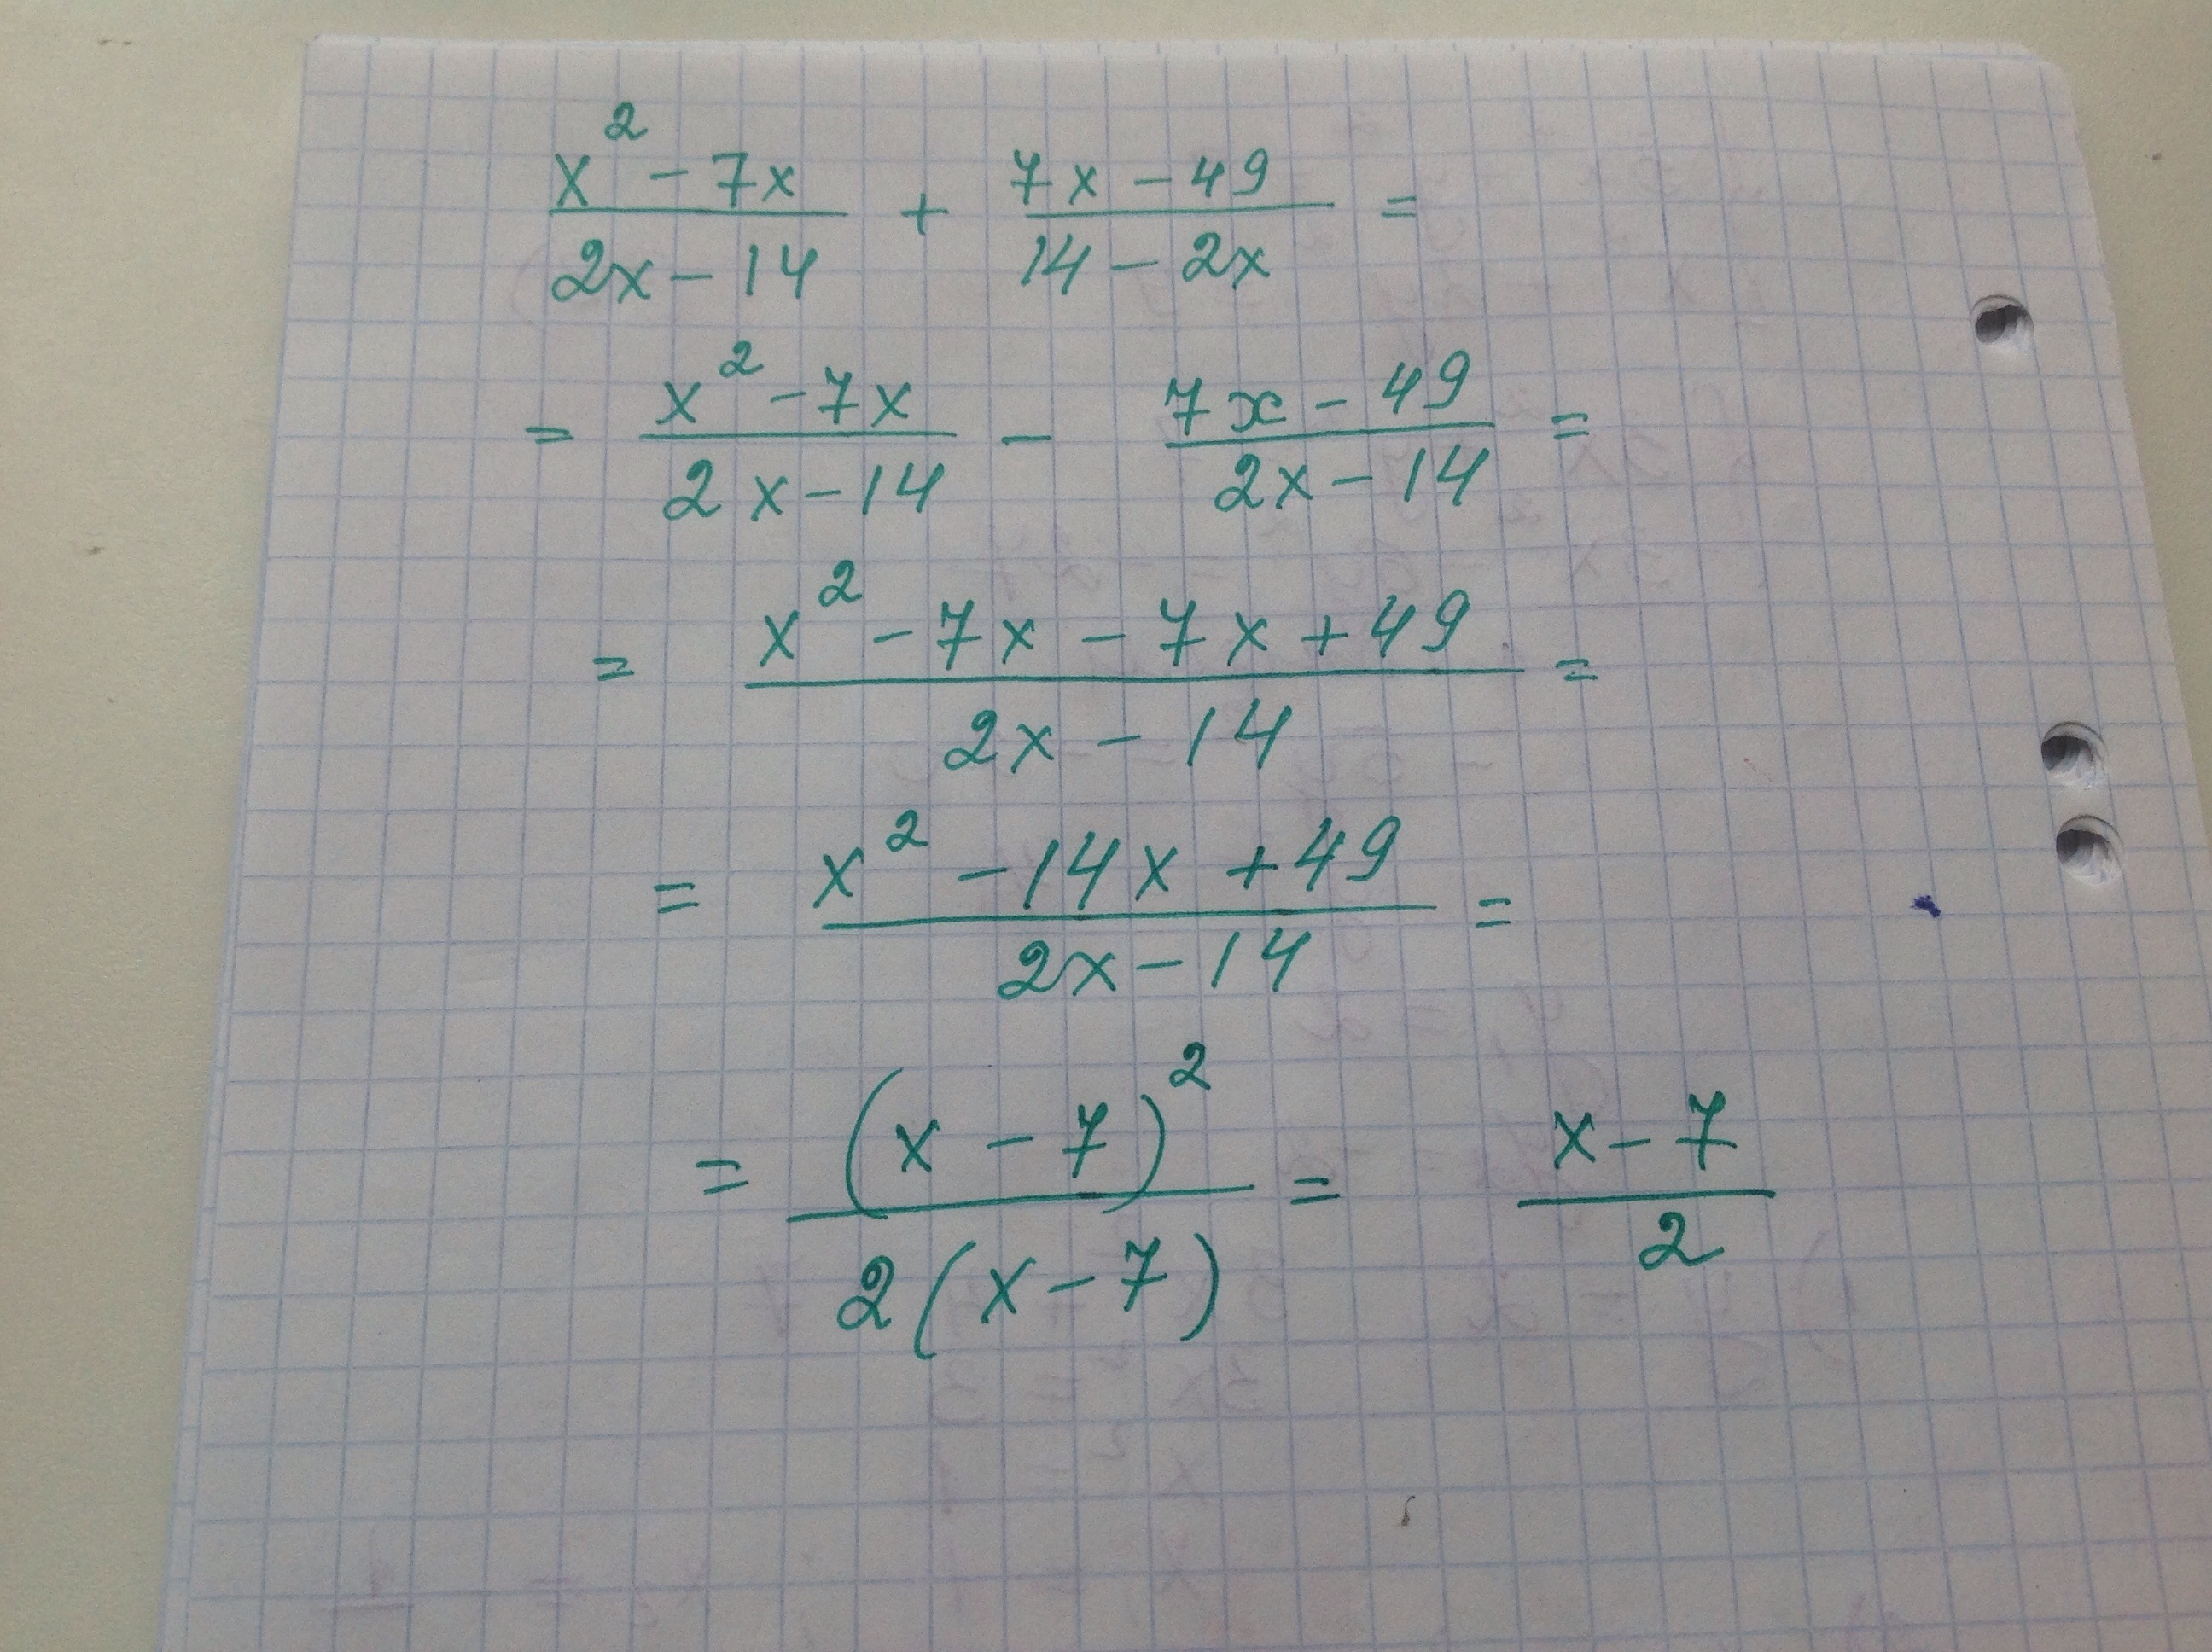 x² - 7x / 2x - 14 + 7x - 49 / 14 - 2x =
= x² - 7x / 2x - 14 - 7x - 49 / 2x - 14 =
= x² - 7x - 7x + 49 / 2x - 14 =
= x² - 14x + 49 / 2x - 14 =
= (x - 7)² / 2(x - 7) = x - 7 / 2